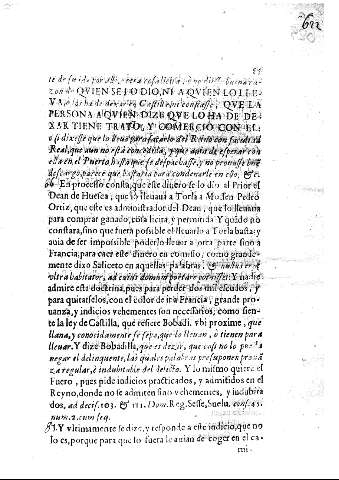 602
51
zon de QVIEN SE LO DIO, NI A QVIEN LO LLE-
VA, QVE LA
PERSONA A QVIEN DIZE QVE LO HA DE DE-
XAR TIENE TRATO, Y COMERCIO CON EL-
Real, que aun no està concedido, y que auia de esperar con
ella en el Puerto hasta que se despachasse, y no prouasse
descargo, parece que bastaria para condenarle en ello, &c.
60 En processo consta, que este dinero se lo dio el Prior el
Dean de Huesca, que lo lleuaua a Torla a Mossen Pedro
Ortiz, que este es administrador del Dean, que lo lleuaria
para comprar ganado, cosa licita, y permitida. Y quãdo no
constara, sino que fuera possible el lleuarlo a Torla basta; y
auia de ser impossible poderlo lleuar a otra parte sino a
Francia, para caer este dinero en comisso, como grande-
mente dixo Saliceto en aquellas palabras,
Y no ha
admite esta doctrina, pues para perder dos mil escudos, y
para quitarselos, con el color de ir a Francia, grande pro-
uanza, y indicios vehementes son necesarios, como sien-
te la ley de Castilla, que refiere Bobadi. vbi proxime, que
llana, y conocidamente se sepa, que lo lleuan, ò tienen para
lleuar. Y dize Bobadilla, que es dezir, que casi no lo pueda
negar el delinquente, las quales palabras presuponen prouã
za regular, è indubitable del delicto. Y lo mismo quiere el
Fuero, pues pide indicios practicados, y admitidos en el
Reyno, donde no se admiten sino vehementes, y indubita
dos, ad decis. 103. & 111. Dom. Reg. Sesse, Suelu. cons. 45.
num. 2. cum seq.
61 Y vltimamente se dize, y responde a este indicio, que no
lo es, porque para que lo fuera le auian de coger en el ca-
mi-